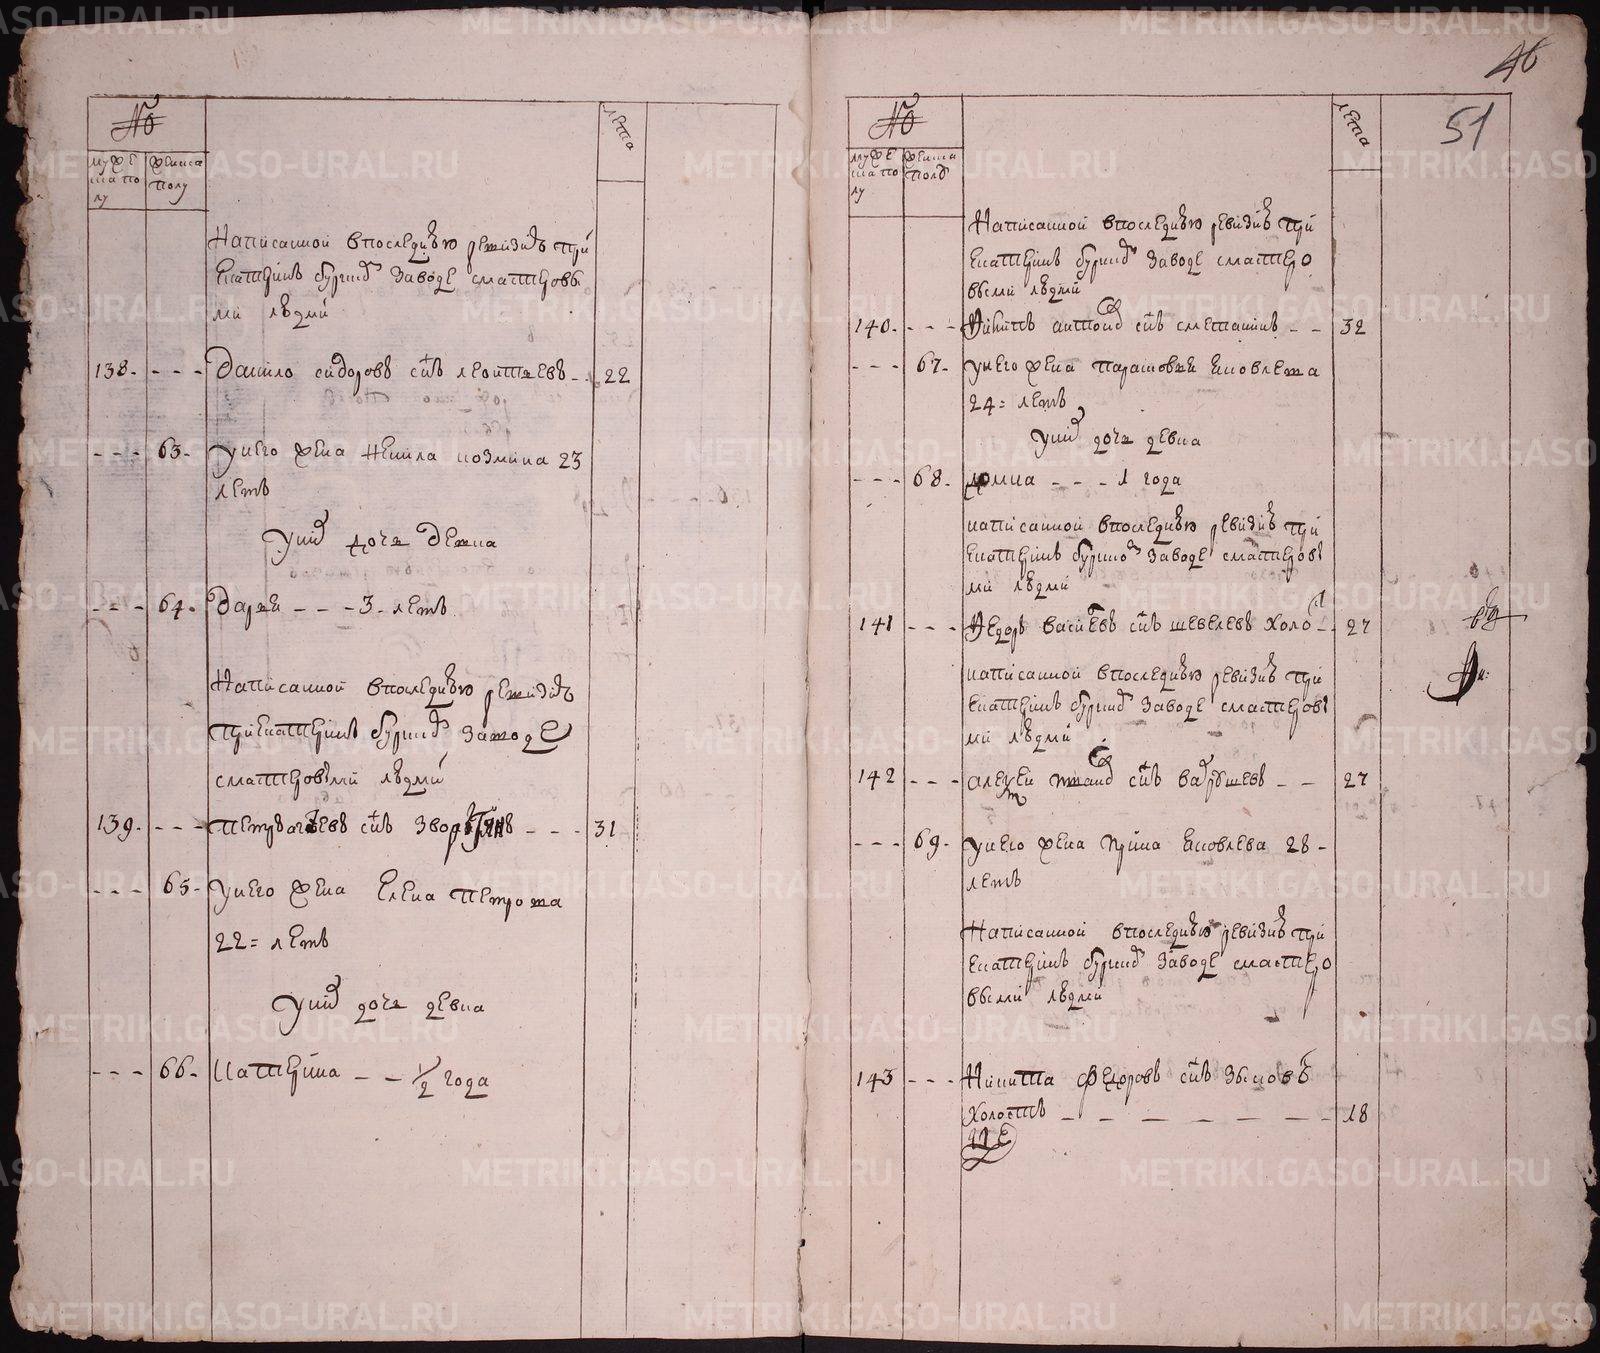 №
лета
мужеска полу
женска полу
Написанной впоследнюю ревизию при
Екатерин бургско заводе смастеровы
ми людми
138 - - - - Данило сидоровъ сынъ леонтьевъ - 22
- - - 63 - унего жена Ненила козмина 23
летъ
унихъ дочь девка
- - - 64 - Дарья - - - 3 - летъ
Написанной впоследнюю ревизию
приЕкатерин бургско заводе
смастеровыми людми
139 - - - - петръ сынъ - - - 31
- - - 65 - унего жена Елена петрова
22 = летъ
унихъ дочь девка
- - - 66 - Катерина - - 1/2 года
46
51
№
лета
мужеска полу
женска полу
Написанной впоследнюю ревизию при
Екатерин бургско заводе смастеро
выми людми
140 - - - - Никита антоновъ сынъ сметанинъ - - 32
- - - 67 - унего жена парасковья Яковлева
24 = летъ
унихъ дочь девка
- - - 68 - домна - - - 1 года
написанной впоследнюю ревизию при
Екатерин бургско заводе смастеровы
ми людми
141 - - - Федоръ васильевъ сынъ шевелевъ холо - 27
написанной впоследнюю ревизию при
Екатерин бургско заводе смастеровы
ми людми
142 - - - алексей ивановъ сынъ - - 27
- - - 69 - унего жена Ирина Яковлева 28 -
летъ
Написанной впоследнюю ревизию при
Екатерин бургско заводе смастеро
выми людми
143 - - - Никита федоровъ сынъ зыковъ
холостъ - - - - - - 18
METRIKI.GASO-URAL.RU